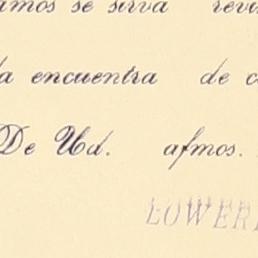 amos se sirva revi
la encuentra de c
De Ud. afmos.
LOWER